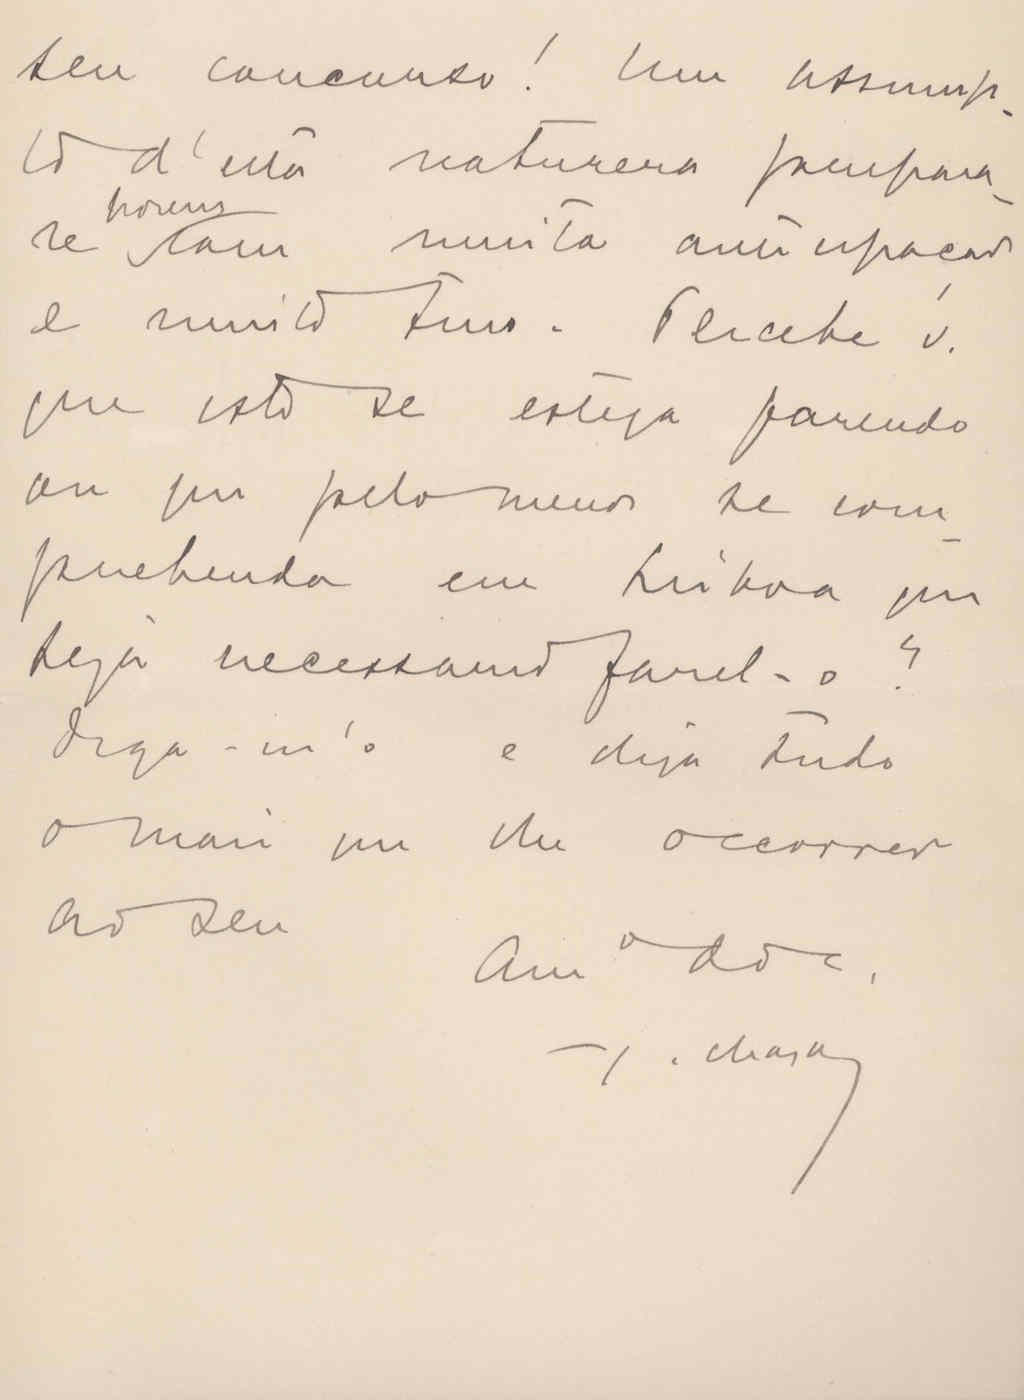 seu concurso! Um assump-
to d'esta natureza prepara-
se porem com muita antecipação
e muito tino. Percebe v.
que isto se esteja fazendo
ou que pelo menos se com-
prehenda em Lisboa que
seja necessario fazel-o?
Diga-m'o e diga tudo
o mais que lhe occorrer
ao seu
Am.º